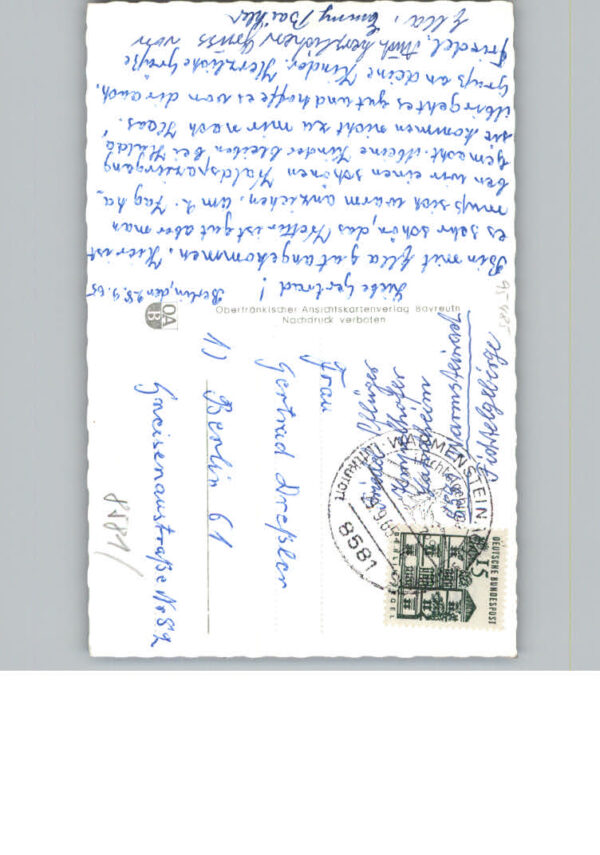 Berlin, den 28.9.65
Liebe Gertrud!
Bin mit Ella gut angekommen. Hier ist
es sehr schön, das Wetter ist gut aber man
muß sich warm anziehen. Am 2. Tag ha-
ben wir einen schönen Waldspaziergang
gemacht. Meine Kinder bleiben bei Hulda
sie kommen nicht zu mir nach Haas.
Übrigehtes gut und hoffe es von dir auch.
Gruß an deine Kinder. Herzliche Grüße
Friedel. Auch herzlichen Gruss von
Ella, Emmy
OAB
Oberfränkischer Ansichtskartenverlag Bayreuth
Nachdruck verboten
95/485
Friedel Pflüger
8581 Warmensteinach
Fichtelgebirge
Frau
Gertrud Dreßler
1) Berlin 61
Gneisenaustraße Nr 82
8581/
8581 WARMENSTEINACH
Luftkurort
DEUTSCHE BUNDESPOST
15